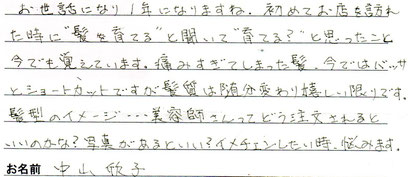 お世話になり1年になりますね。初めてお店を訪れ
た時に"髪を育てる"と聞いて"育てる?"と思ったこと
今でも覚えています。痛みすぎてしまった髪、今ではバッサ
とショートカットですが髪質は随分変わり嬉しい限りです。
髪型のイメージ・・・美容師さんってどう注文されると
いいのかな?写真があるといい?イメチェンしたい時、悩みます。
お名前 中山 欣子